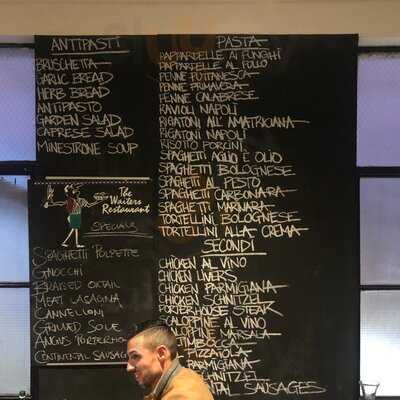 ANTIPASTI
BRUSCHETTA
GARLIC BREAD
HERB BREAD
ANTIPASTO
GARDEN SALAD
CAPRESE SALAD
MINESTRONE SOUP
The
Waiters
Restaurant
SPECIALS
SPAGHETTI POLPETTE
GNOCCHI
BRAISED OXTAIL
MEAT LASAGNA
CANNELLONI
GRILLED SOLE
ANGUS PORTERHO
CONTINENTAL SAUSAG
PASTA
PAPPARDELLE AI FUNGHI
PAPPARDELLE AL POLLO
PENNE PUTTANESCA
PENNE PRIMAVERA
PENNE CALABRESE
RAVIOLI NAPOLI
RIGATONI ALL' AMATRICIANA
RIGATONI NAPOLI
RISOTTO PORCINI
SPAGHETTI AGLIO E OLIO
SPAGHETTI BOLOGNESE
SPAGHETTI AL PESTO
SPAGHETTI CARBONARA
SPAGHETTI MARNARA
TORTELLINI BOLOGNESE
TORTELLINI ALLA CREMA
SECONDI
CHICKEN AL VINO
CHICKEN LIVERS
CHICKEN PARMIGIANA
CHICKEN SCHNITZEL
PORTERHOUSE STEAK
SCALOPPINE AL VINO
MARSALA
TIMBOCCA
PIZZAIOLA
PARMIGIANA
SCHNITZEL
TAL SAUSAGES